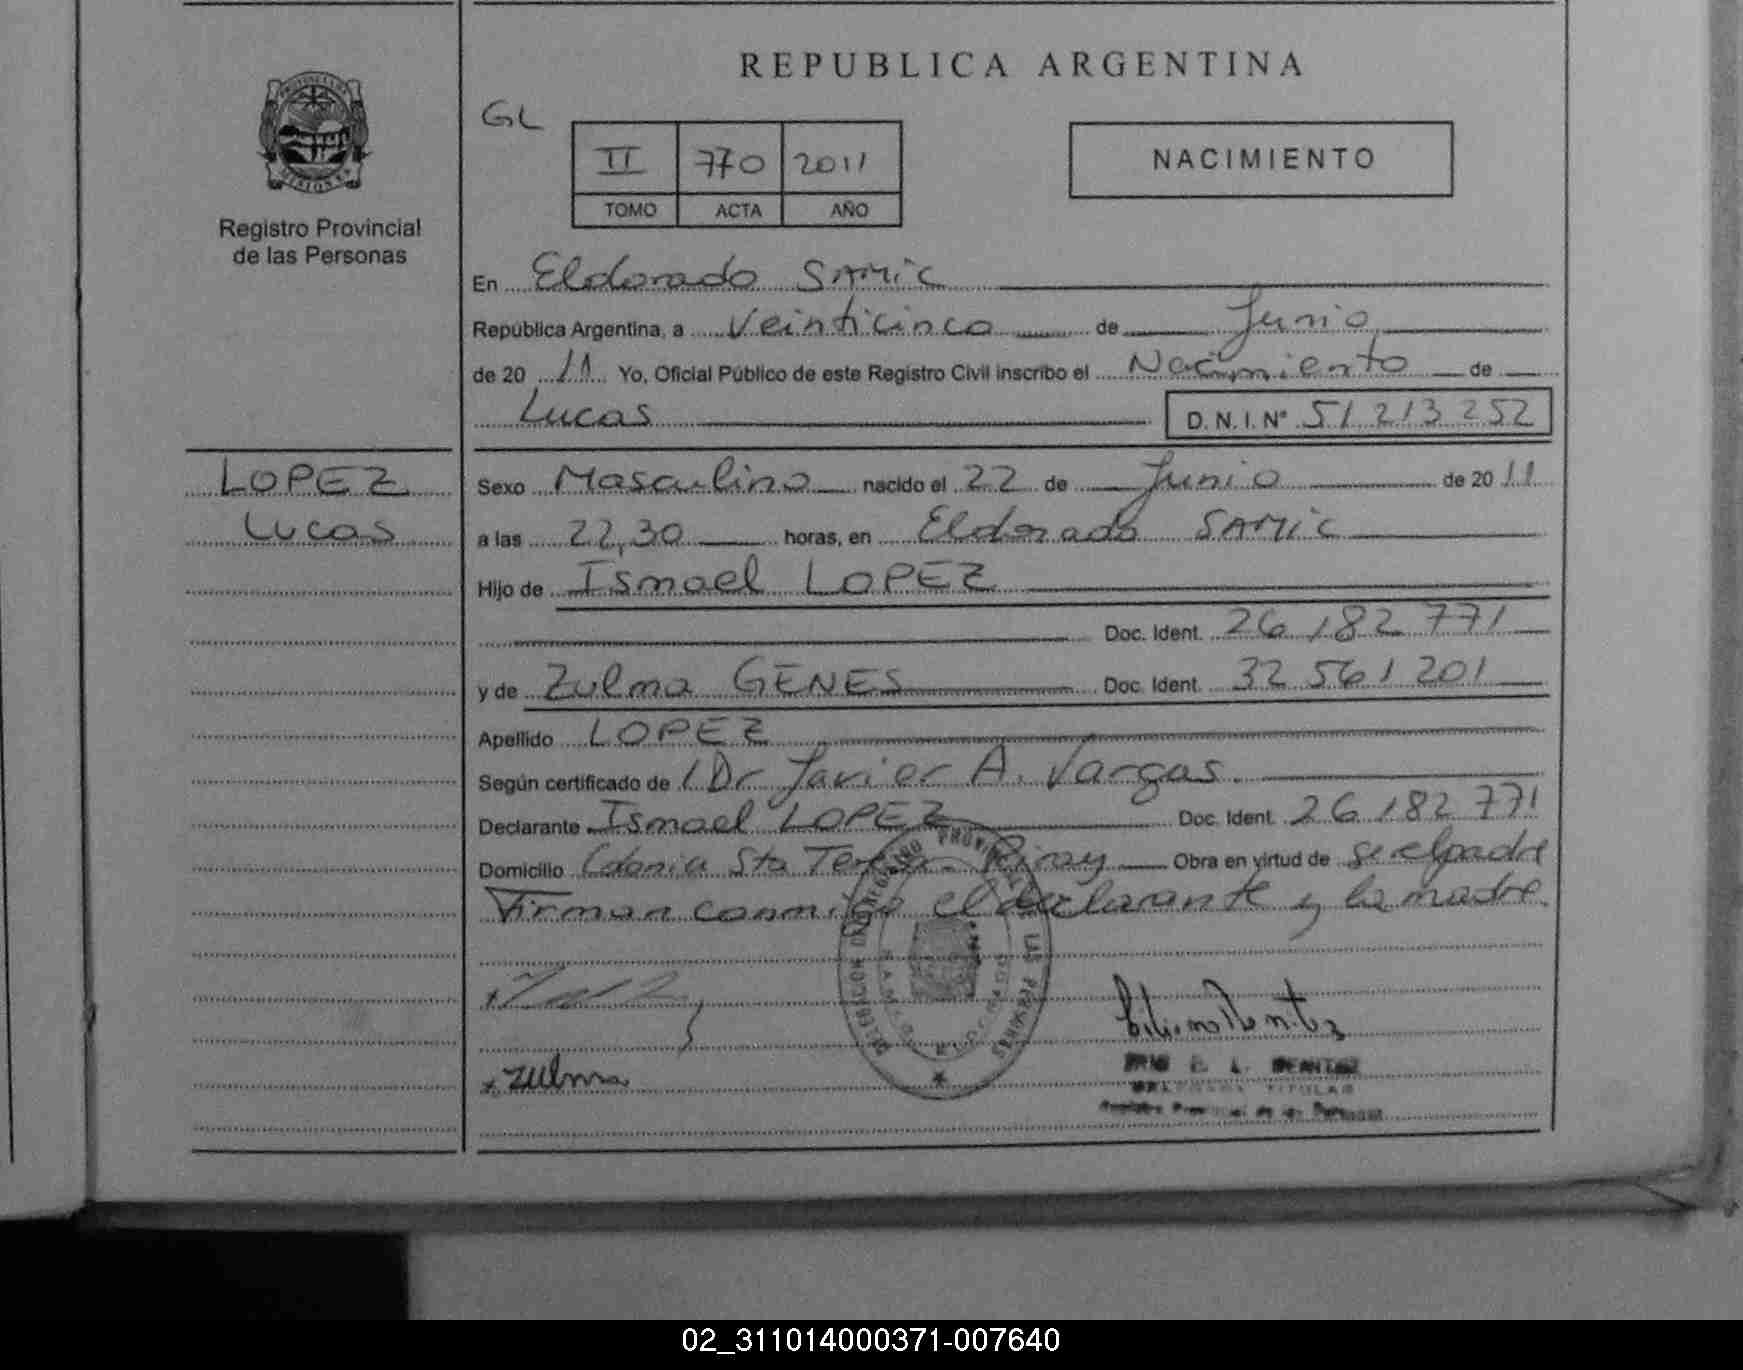 REPUBLICA ARGENTINA
GL
II 770 2011
TOMO ACTA AÑO
NACIMIENTO
Registro Provincial
de las Personas
En Eldorado SAMiC
República Argentina, a Veinticinco de Junio
de 20 11 Yo, Oficial Público de este Registro Civil inscribo el Nacimiento de
Lucas D. N. I. Nº 51 213 252
LOPEZ
Lucas
Sexo Masculino nacido el 22 de Junio de 20 11
a las 22,30 horas, en Eldorado SAMiC
Hijo de Ismael LOPEZ
Doc. Ident. 26 182 771
y de Zulma GENES Doc. Ident. 32 561 201
Apellido LOPEZ
Según certificado de Dr Javier A. Vargas.
Declarante Ismael LOPEZ Doc. Ident. 26 182 771
Domicilio Colonia Sta Teresa - Piray Obra en virtud de ser el padre
Firman conmigo el declarante y la madre.
DELEGACION DEL REGISTRO PROVINCIAL DE LAS PERSONAS
Zulma
BENITEZ
TITULAR
Registro Provincial de las Personas
02_311014000371-007640